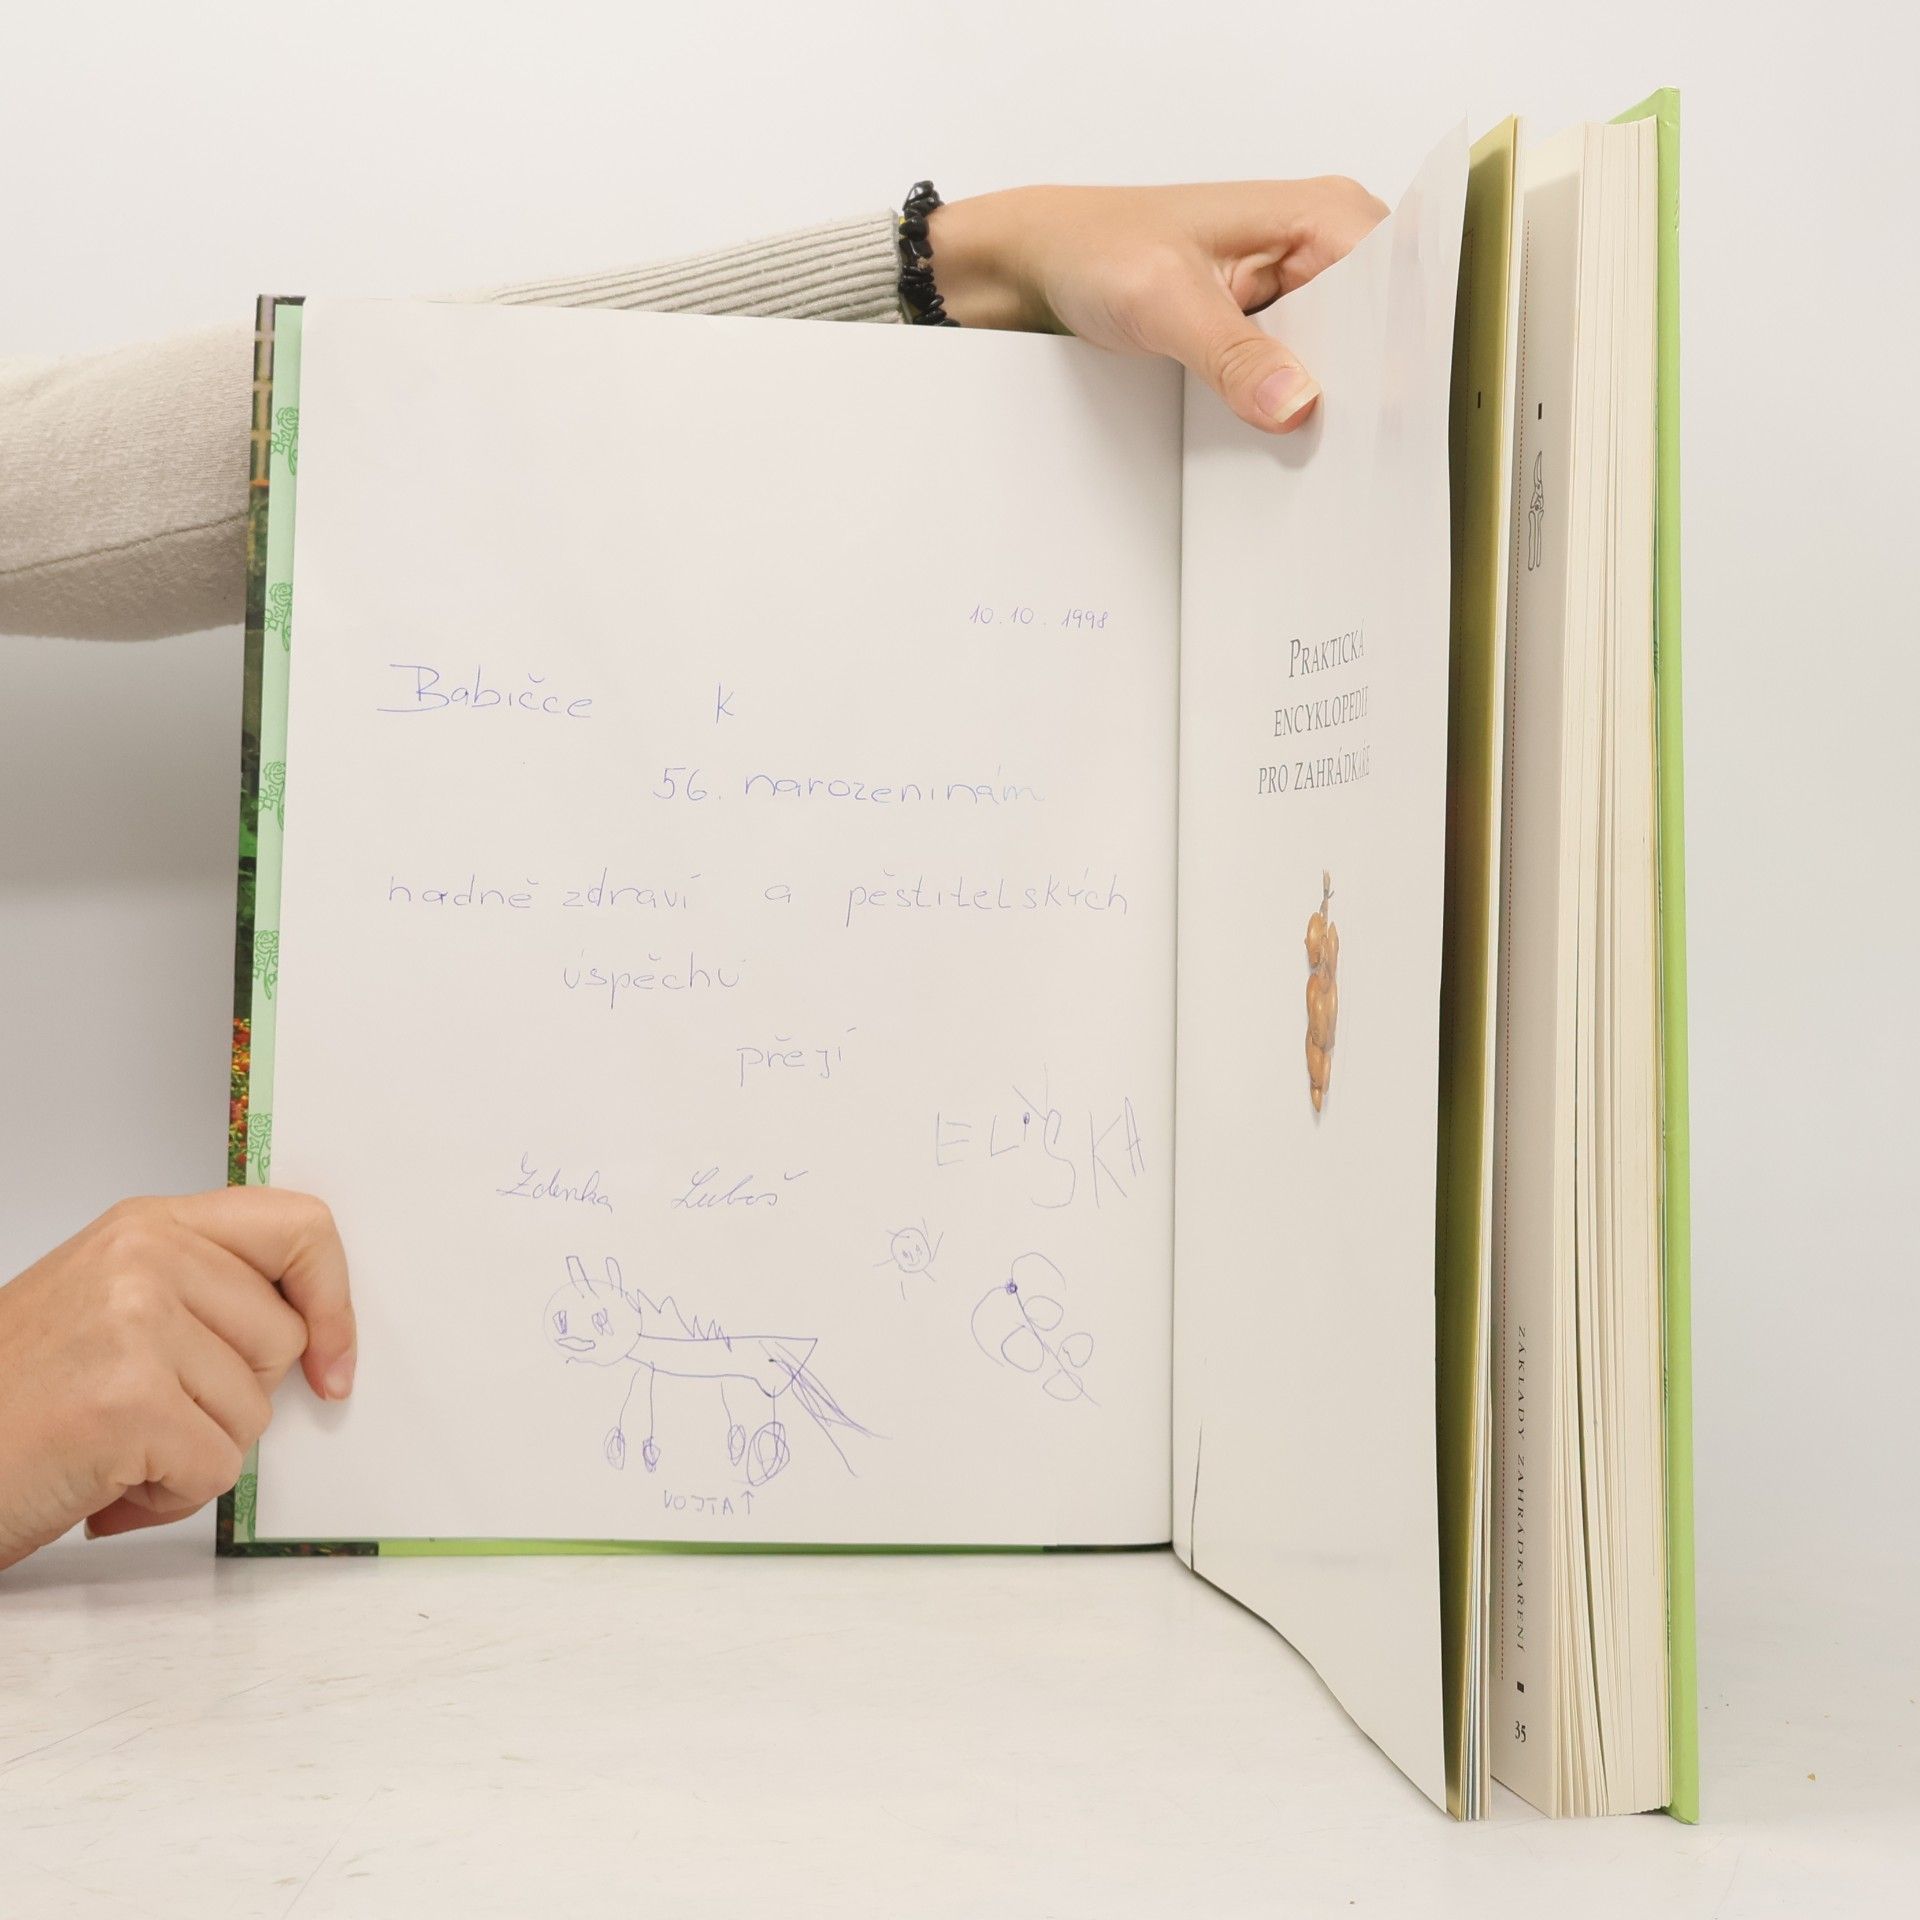 10.10. 1998
Babičce k
56. narozeninám
hodně zdraví a pěstitelských
úspěchů
přejí
ELIŠKA
Zdenka Luboš
VOJTA↑
PRAKTICKÁ
ENCYKLOPEDIE
PRO ZAHRÁDKÁŘE
ZÁKLADY ZAHRÁDKAŘENÍ
35